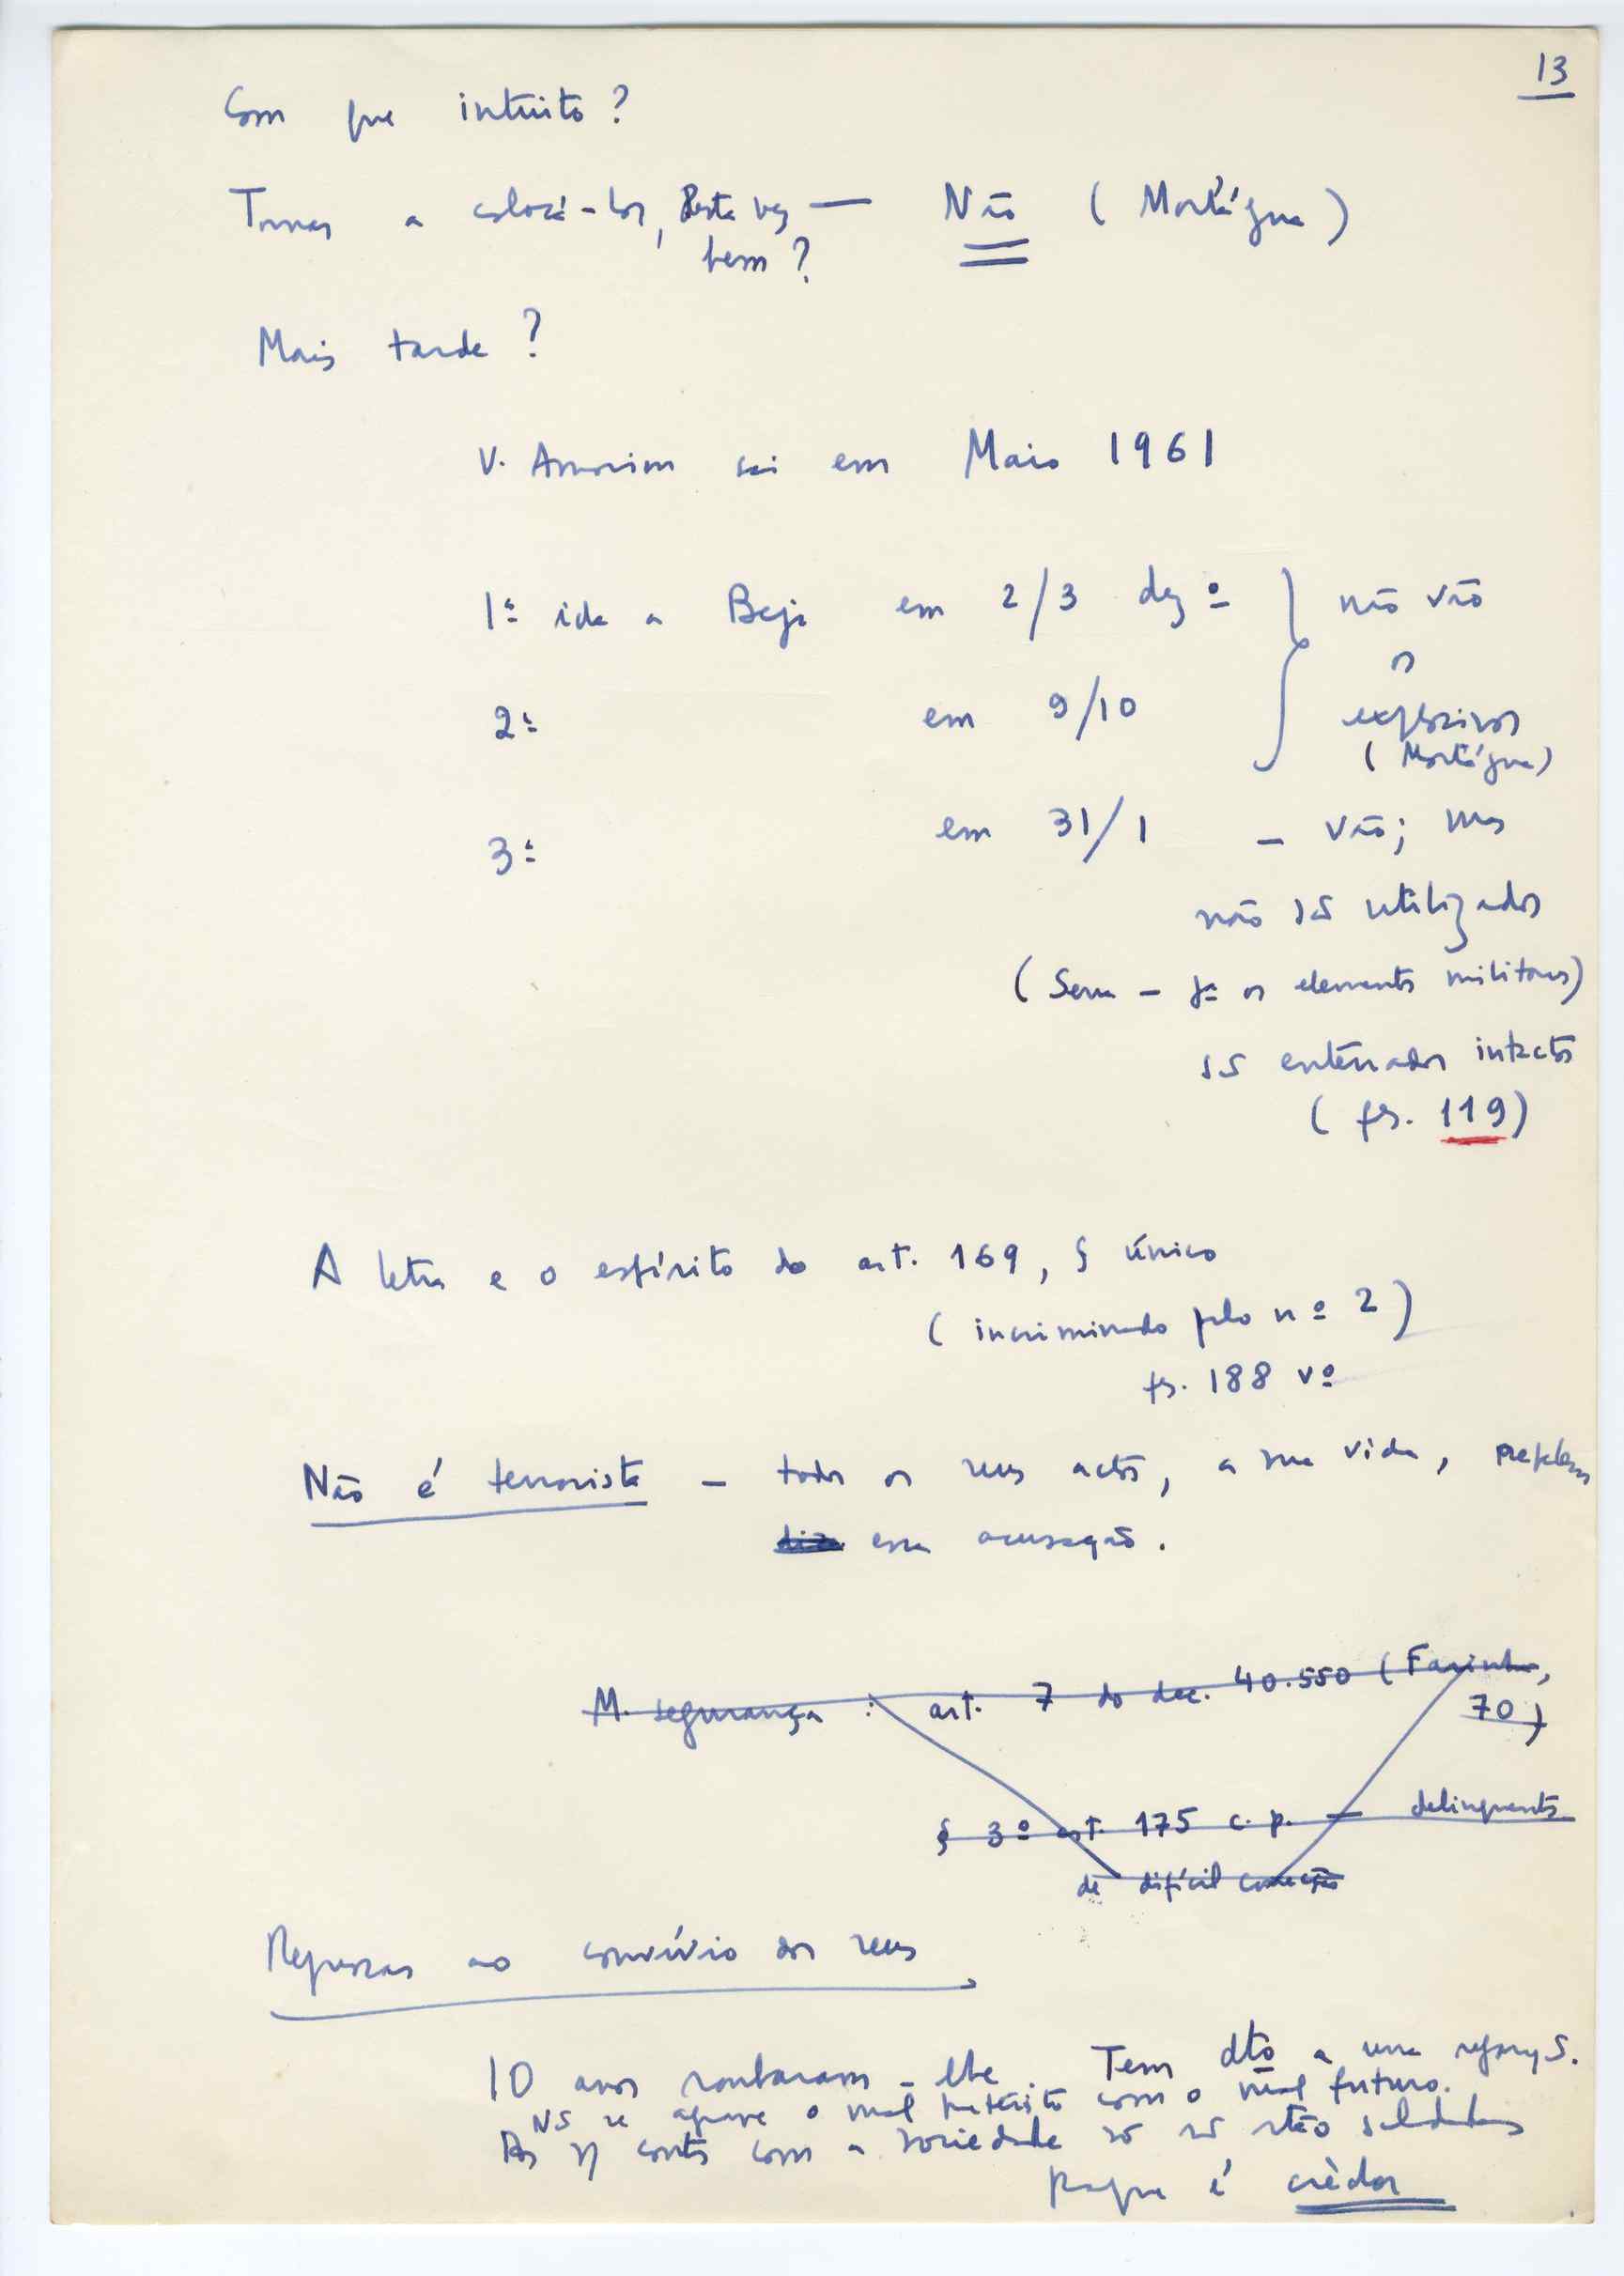 13
Com que intuito?
Tornar a colocá-los, desta vez — Não (Mortágua)
bem?
Mais tarde?
V. Amorim sai em Maio 1961
1ª ida a Beja em 2/3 dezº } não vão
os
2ª em 9/10 explosivos
(Mortágua)
3ª em 31/1 – vão; mas
não são utilizados
(Serra – os elementos militares)
são enterrados intactos
(fs. 119)
A letra e o espírito do art. 169, § único
(incriminado pelo nº 2)
fs. 188 vº
Não é terrorista – todos os seus actos, a sua vida,
essa acusação.
M. segurança : art. 7 do dec. 40.550 (Farinha,
70)
§ 3º art. 175 c. p. — delinquentes
de difícil correcção
Regressar ao convívio dos seus
10 anos roubaram-lhe Tem dtº a uma
Não se agrave o mal pretérito com o mal futuro.
As contas com a sociedade só não estão saldadas
porque é crèdor